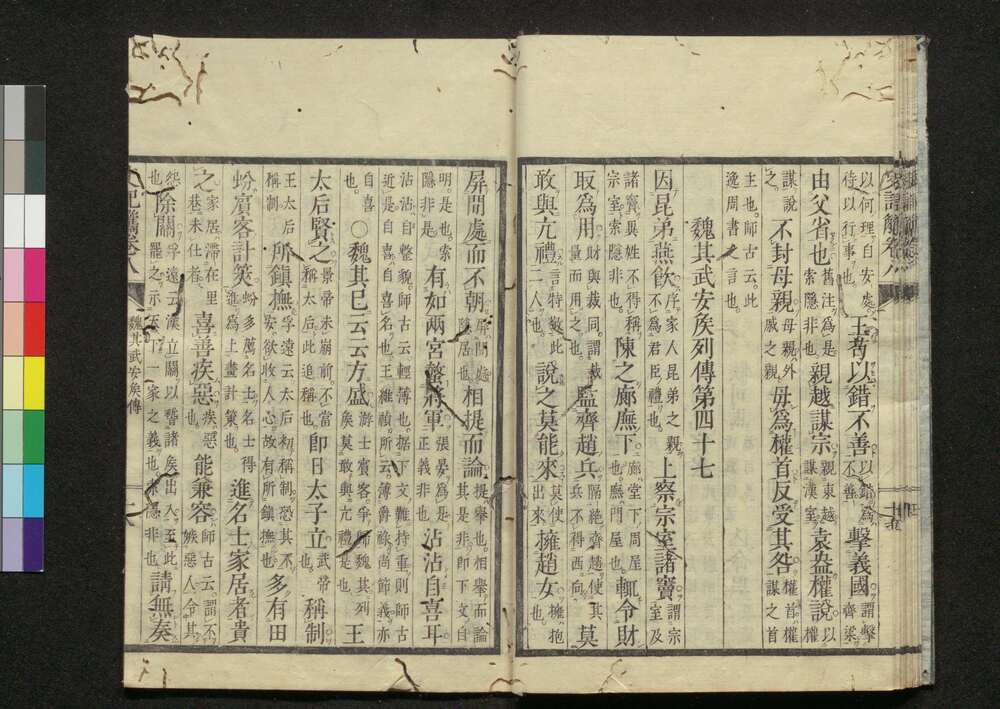 以何理自安處侍以行事也王者以錯不善以錯爲不善擊義國謂擊齊梁
由父省也舊注爲是索隱非也親越謀宗親東越謀漢室袁盎權說以權
謀說之不封母親母親外戚之親毋爲權首反受其咎權首權謀之首
主也師古云此逸周書之言也
魏其武安矦列傳第四十七
因昆弟燕飮序家人昆弟之親不爲君臣禮也上察宗室諸竇謂宗室及
諸竇與姓不得稱宗室索隱非也陳之廊廡下廊堂下周屋也廡門屋也輒令財
取爲用財與裁同謂裁量而用之也監齊趙兵隔絶齊趙使其兵不得西向莫
敢與亢禮言特敬此二人也說之莫能來莫使出來擁趙女擁抱也
屏閒處而不朝屏閒處隱居也相提而論提擧也相擧而論其是非卽下文自
明是也索隱非是有如兩宮螫將軍張晏爲是正義非也沾沾自喜耳
沾沾自整貌師古云輕薄也據下文難持重則師古近是自喜自名也王維禎所云薄爵祿尚節義亦
自喜也○魏其巳云云方盛游士賓客爭歸魏其列矦莫敢與亢禮是也王
太后賢之景帝未崩前不當稱太后此追稱也卽日太子立武帝稱制
王太后稱制所鎭撫孚遠云太后初稱制恐其不安欲收人心故有所鎭撫也多有田
蚡賓客計筴蚡多薦名士名士得進爲上畫計策也進名士家居者貴
之家居滯在里巷未仕者喜善疾惡疾惡也能兼容師古云謂不嫉惡人令其
怨也除關孚遠云漢立關以譏諸矦出入至此罷之示天下一家之義也索隱非也請無奏
魏其武安矦傳